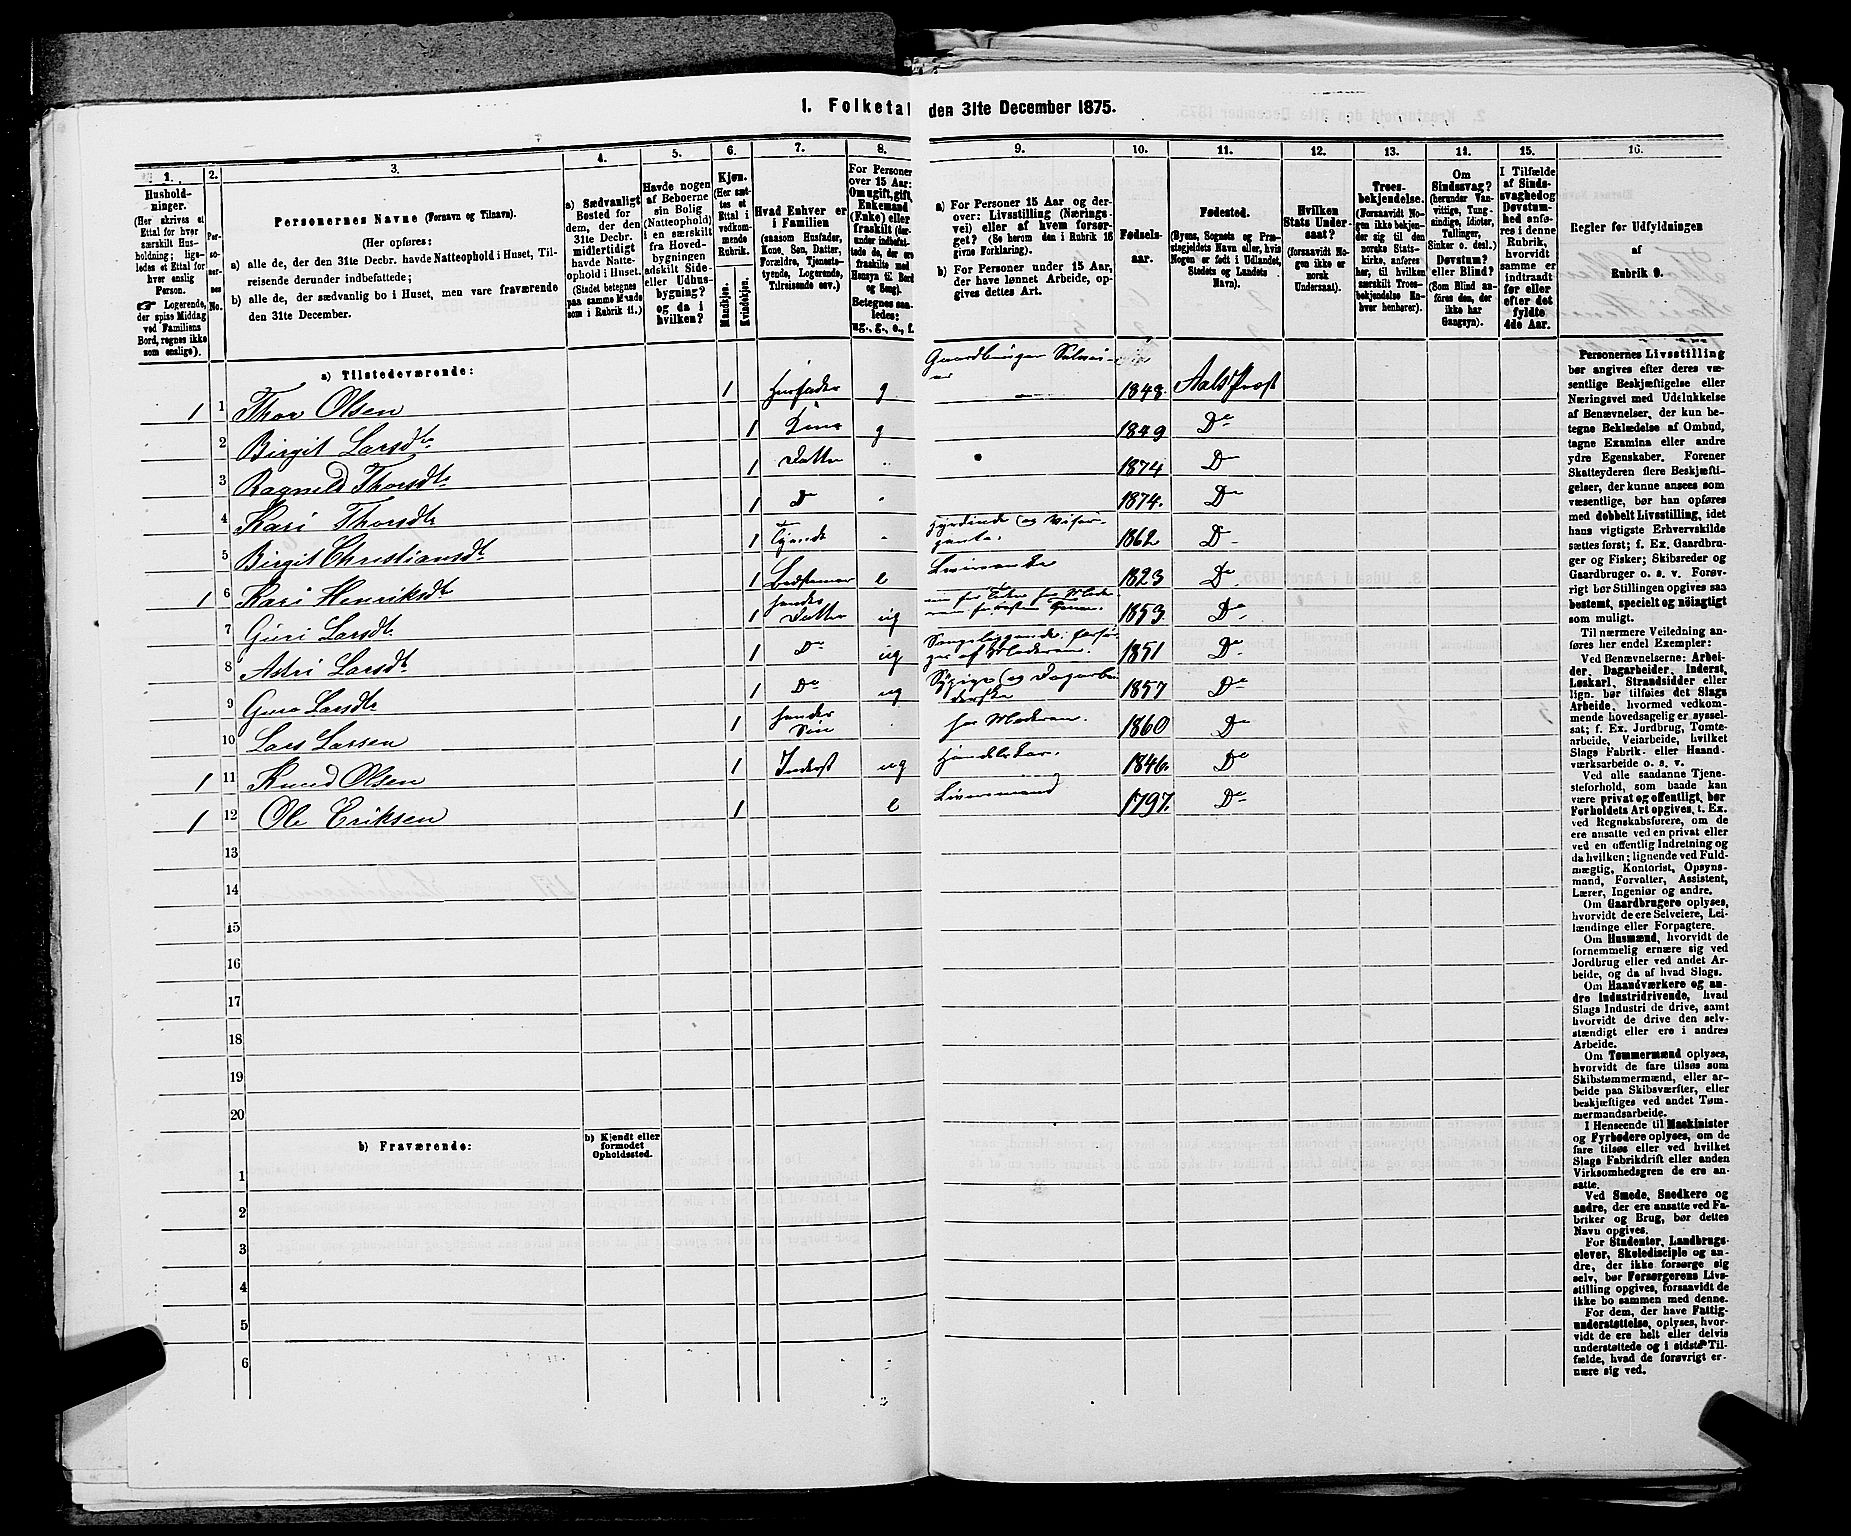 1. Folketal den 31te December 1875.
1.
Husholdninger.
(Her skrives et
Ettal for hver
særskilt Husholdning;
ligeledes et Ettal for
hver enslig
Person.
Logerende,
der spise Middag
ved Familiens
Bord, regnes ikke
som enslige).
2.
Personernes
No.
3.
Personernes Navne (Fornavn og Tilnavn).
(Her opføres:
a) alle de, der den 31te Decbr. havde Natteophold i Huset, Tilreisende derunder indbefattede;
b) alle de, der sædvanlig bo i Huset, men vare fraværende
den 31te December.
4.
a) Sædvanligt
Bosted for
dem, der den
31te Decbr.
midlertidigt
havde Natteophold
i Huset.
(Stedet betegnes
paa samme Maade
som i Rubrik 11.)
5.
Havde nogen
af Beboerne
sin Bolig
(Natteophold)
i en særskilt
fra Hovedbygningen
adskilt Side-
eller Udhusbygning?
og da i
hvilken?
6.
Kjøn.
(Her sættes et
Ettal i
vedkommende
Rubrik.
Mandkjøn.
Kvindekjøn.
7.
Hvad Enhver er
i Familien
(saasom Husfader,
Kone, Søn, Datter,
Forældre, Tjenestetyende,
Logerende,
Tilreisende osv.)
8.
For Personer
over 15 Aar:
Om ugift, gift,
Enkemand
(Enke) eller
fraskilt
Betegnes saaledes:
ug., g., e., f.
9.
a) For Personer 15 Aar og derover:
Livsstilling (Næringsvei)
eller af hvem forsørget?
(Se herom den i Rubrik 16
givne Forklaring).
b) For Personer under 15 Aar,
der have lønnet Arbeide, opgives
dettes Art.
10.
Fødselsaar.
11.
Fødested.
(Byens, Sognets og Præstegjeldets
Navn eller, hvis
Nogen er født i Udlandet,
Stedets og Landets
Navn).
12.
Hvilken
Stats Undersaat?
(forsaavidt Nogen
ikke er
norsk
Undersaat).
13.
Troesbekjendelse.
(Forsaavidt Nogen
ikke bekjender
sig til den
norske Statskirke,
anføres
her, til hvilken
særskilt Troesbekjendelse
Enhver
henhører).
14.
Om
Sindssvag?
(herunder Vanvittige,
Tungsindige,
Idioter,
Tullinger,
Sinker o. desl.)
Døvstum?
eller Blind?
(Som Blind anføres
den, der
ikke har
Gangsyn).
15.
I Tilfælde
af Sindssvaghed
og
Døvstumhed
anføres
i denne
Rubrik,
hvorvidt
samme er
indtraadt
før eller
efter det
fyldte
4de Aar.
16.
Regler for Udfyldningen
af
Rubrik 9.
a) Tilstedeværende:
1 1 Thor Olsen 1 Husfader g Gaardbruger Selveier 1848. Aals Præst
2 Birgit Larsdtr 1 Kone g 1849 Do
3 Ragnild Thorsdtr 1 Datter 1874 Do
4 Kari Thorsdtr 1 Do 1874. Do
5 Birgit Christiansdtr 1 Tyende 1862 Do
1 6 Kari Henriksdtr 1 e 1823 Do
7 Guri Larsdtr 1 Datter ug 1853. Do
8 Astri Larsdtr 1 Do ug Sengeliggende, af Moderen. 1851 Do
9 Guro Larsdtr 1 Do ug Sypige og 1857 Do
10 Lars Larsen 1 Søn Moderen. 1860 Do
1 11 Knud Olsen 1 Inderst ug 1846. Do
1 12 Ole Eriksen 1 e 1797. Do
13
14
15
16
17
18
19
20
b) Fraværende:
b) Kjendt eller
formodet
Opholdssted.
1
2
3
4
5
6
Personernes Livsstilling
bør angives efter deres væsentlige
Beskjæftigelse eller
Næringsvei med Udelukkelse
af Benævnelser, der kun betegne
Beklædelse af Ombud,
tagne Examina eller andre
ydre Egenskaber. Forener
Skatteyderen flere Beskjæftigelser,
der kunne ansees som
væsentlige, bør han opføres
med dobbelt Livsstilling, idet
hans vigtigste Erhvervskilde
sættes først; f. Ex. Gaardbruger
og Fisker; Skibsreder og
Gaardbruger o. s. v. Forøvrigt
bør Stillingen opgives saa
bestemt, specielt og nøiagtigt
som muligt.
Til nærmere Veiledning anføres
her endel Exempler:
Ved Benævnelserne: Arbeider,
Dagarbeider, Inderst,
Løskarl, Strandsidder eller
lign. bør tilføies det Slags
Arbeide, hvormed vedkommende
hovedsagelig er sysselsat;
f. Ex. Jordbrug, Tomtearbeide,
Veiarbeide, hvilket
Slags Fabrik- eller Haandværksarbeide
o. s. v.
Ved alle saadanne Tjenesteforhold,
som baade kan
være privat og offentligt, bør
Forholdets Art opgives, t. Ex.
ved Regnskabsførere, om de
ere ansatte ved en privat eller
ved en offentlig Indretning og
da hvilken; lignende ved Fuldmægtig,
Kontorist, Opsynsmand,
Forvalter, Assistent,
Lærer, Ingeniør og andre.
Om Gaardbrugere oplyses,
hvorvidt de ere Selveiere, Leilændinge
eller Forpagtere.
Om Husmænd, hvorvidt de
fornemmelig ernære sig ved
Jordbrug eller ved andet Arbeide,
og da af hvad Slags.
Om Haandværkere og andre
industridrivende, hvad
Slags Industri de drive, samt
hvorvidt de drive den selvstændigt
eller ere i andres
Arbeide.
Om Tømmermænd oplyses,
hvorvidt de fare tilsøs som
Skibstømmermænd, eller arbeide
paa Skibsværfter, eller
beskjæftiges ved andet Tømmermandsarbeide.
I Henseende til Maskinister
og Fyrbødere oplyses, om de
fare tilsøs eller ved hvilket
Slags Fabrikdrift eller anden
Virksomhedsgren de ere ansatte.
Ved Smede, Snedkere og
andre, der ere ansatte ved Fabriker
og Brug, bør dettes
Navn opgives.
For Studenter, Landbrugselever,
Skoledisciple og andre,
der ikke forsørge sig
selv, bør Forsørgerens Livsstilling
opgives, forsaavidt de
ikke bo sammen med denne.
For dem, der have Fattigunderstøttelse,
oplyses, hvorvidt
de ere helt eller delvis
understøttede og i sidste Tilfælde,
hvad de forøvrigt ernære
sig ved.